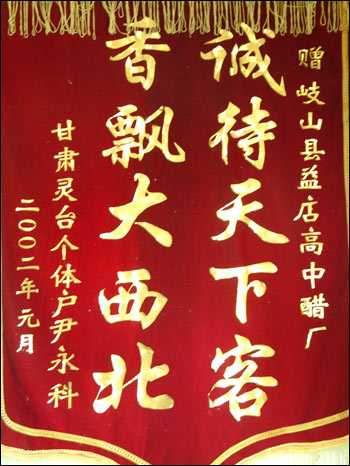 赠岐山县益店高中醋厂
诚待天下客
香飘大西北
甘肃灵台个体户尹永科
二00二年元月